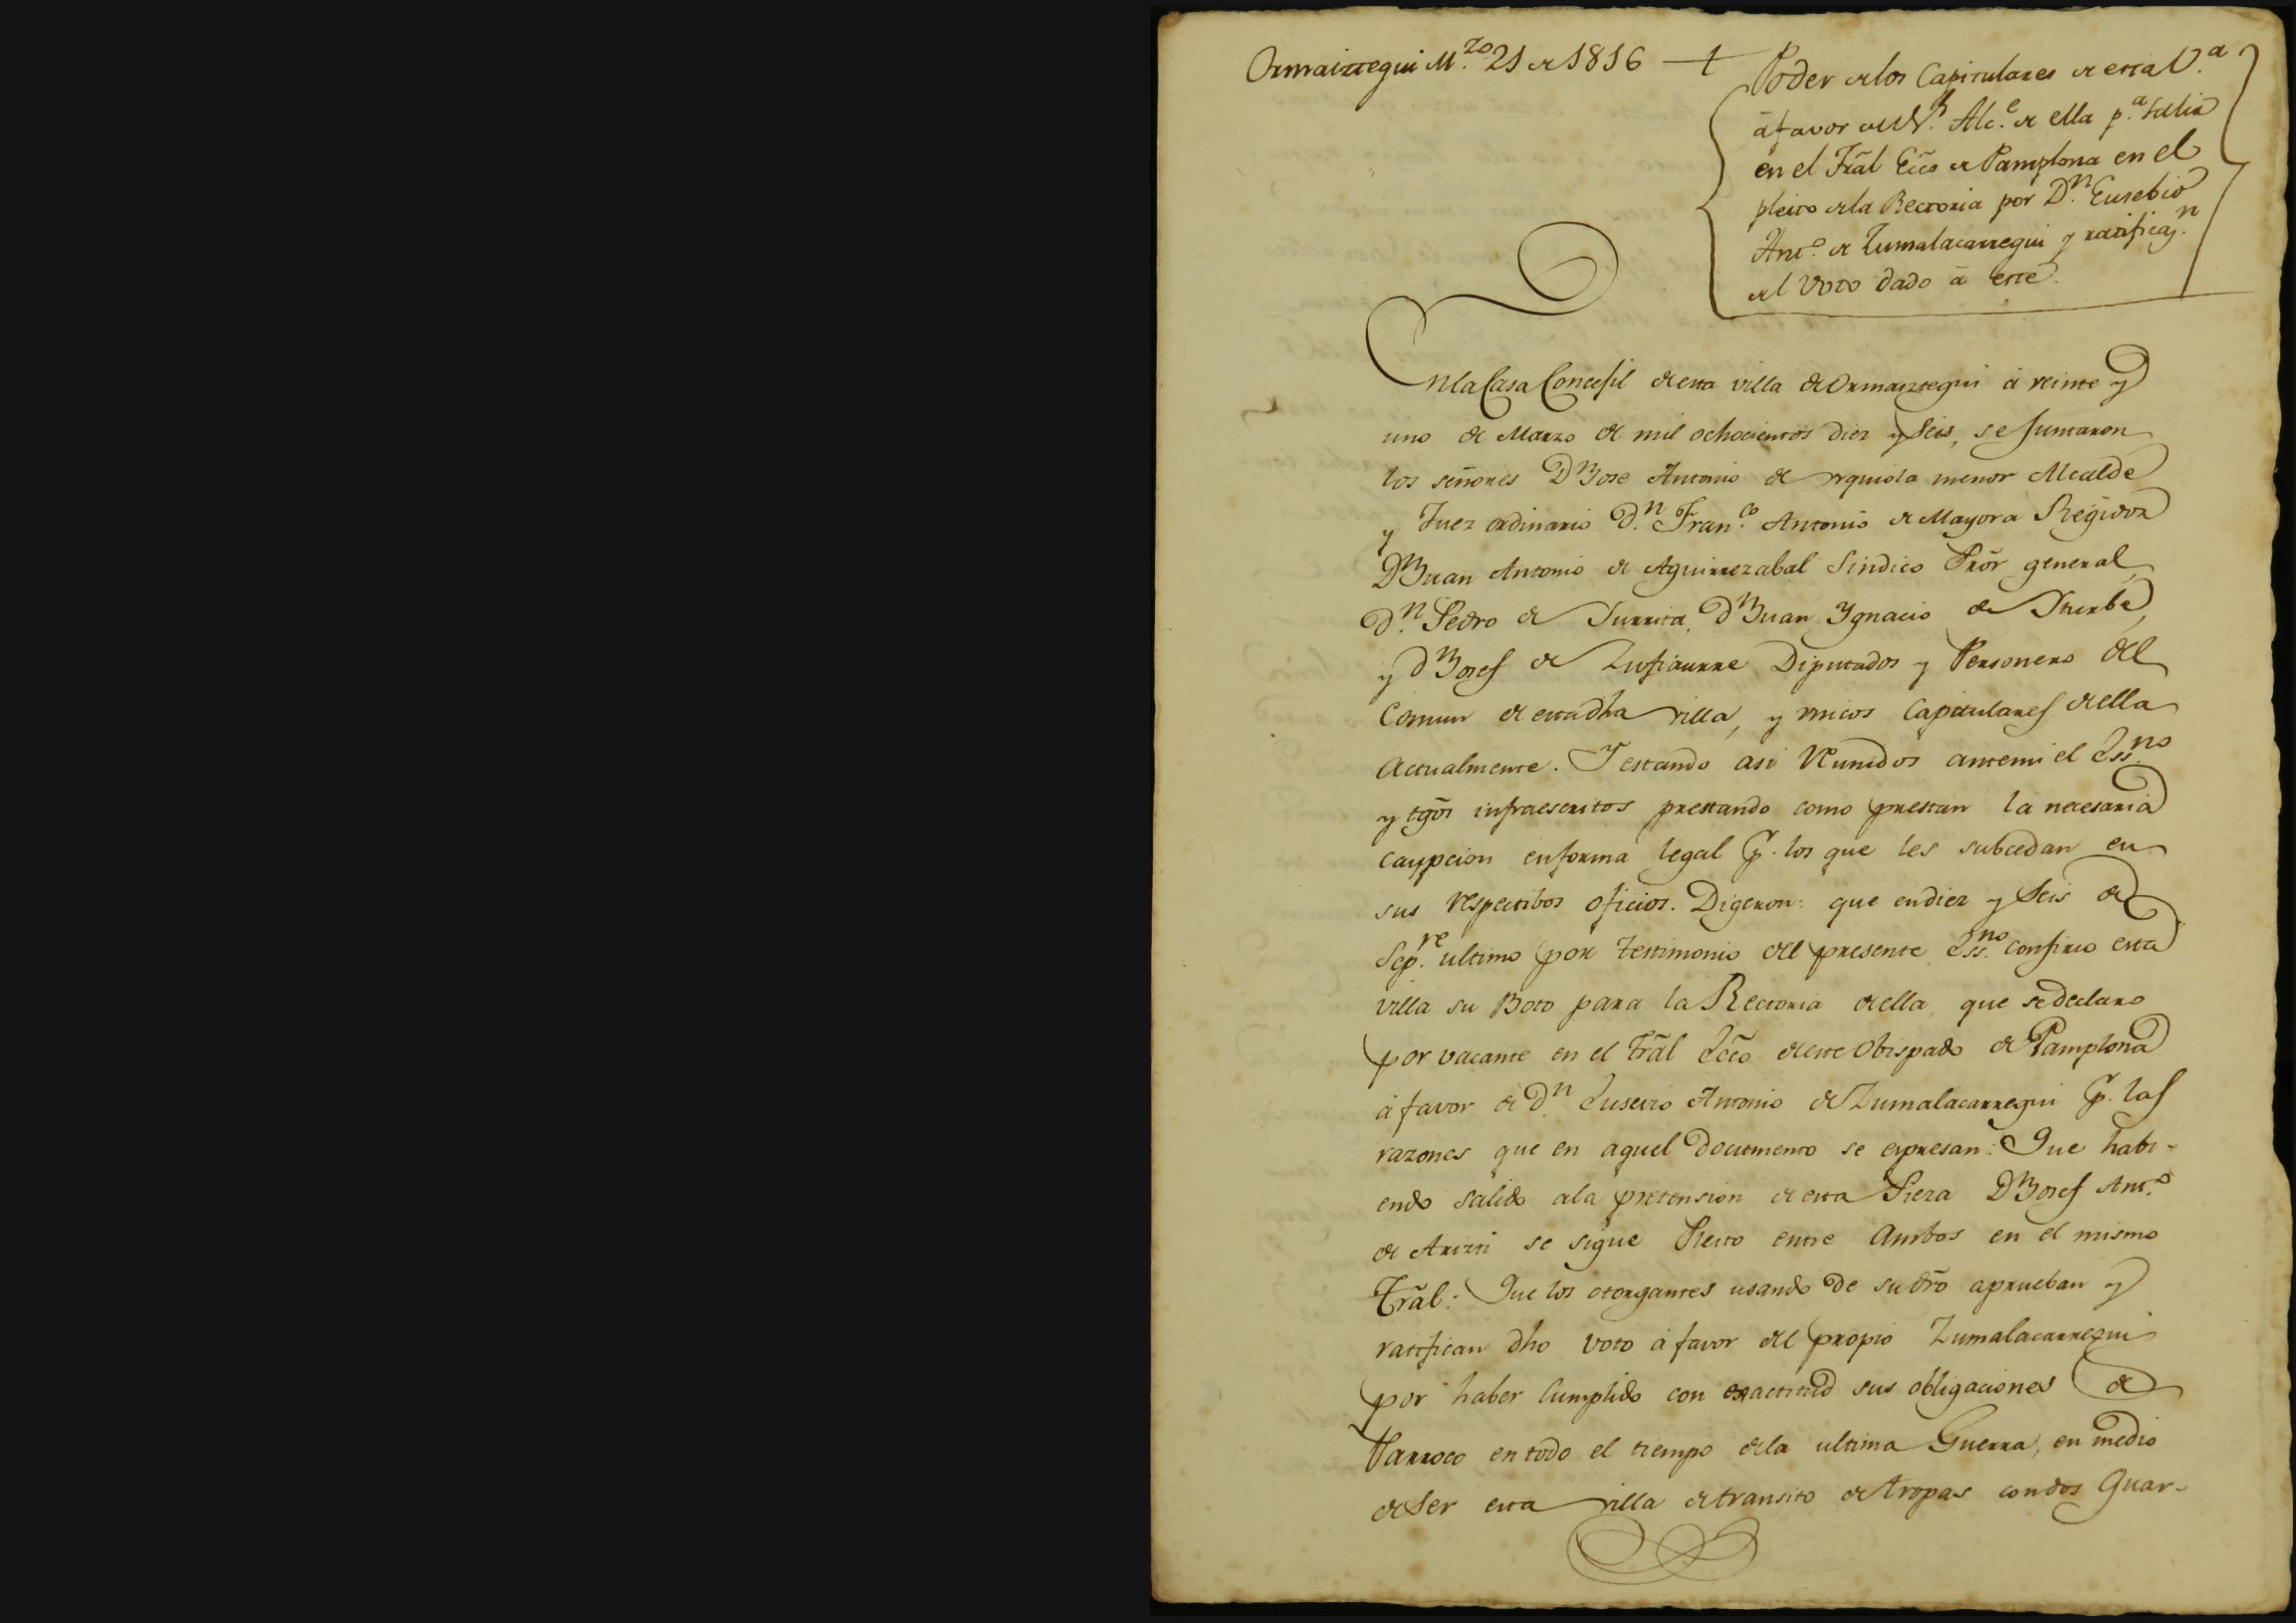 Ormaiztegui M.zo 21 de 1816 +
Poder de los Capitulares de esta V.a
á favor del Sr. Alc.e de ella p.a salir
en el Trãl Ecc̃o de Pamplona en el
pleito de la Rectoria por D.n Eusebio
Ant.o de Zumalacarregui y ratificaz.n
del Voto dado á este.
En la Casa Concejil de esta villa de Ormaiztegui á veinte y
uno de Marzo de mil ochocientos diez y Seis, se Juntaron
los señores D.n Jose Antonio de Yrquiola menor Alcalde
y Juez ordinario D.n Fran.co Antonio de Mayora Regidor
D.n Juan Antonio de Aguirrezabal Sindico Prõr general,
D.n Pedro de Yurrita, D.n Juan Ygnacio de Yturbe,
y D.n Josef de Zufiaurre Diputados y Personero del
Comun de esta dha villa, y unicos Capitulares de ella
Actualmente. Y estando asi Reunidos ante mi el Ess.no
y tg̃os infraescritos prestando como prestan la necesaria
caupcion en forma legal p.r los que les subcedan en
sus respectibos oficios. Digeron: que en diez y Seis de
Sep.re ultimo por testimonio del presente Ess.no confirio esta
villa su Boto para la Rectoria de ella, que se declaro
por vacante en el Trãl Ecc̃o de este Obispado de Pamplona
á favor de D.n Eusevio Antonio de Zumalacarregui p.r las
razones que en aquel documento se expresan: Que habi-
endo salido a la pretension de esta Pieza D.n Josef Ant.o
de Arizti se sigue Pleito entre Ambos en el mismo
Trãl: Que los otorgantes usando de su dr̃o aprueban y
ratifican dho voto á favor del propio Zumalacarregui
por haber Cumplido con exactitud sus obligaciones de
Parroco en todo el tiempo de la ultima Guerra, en medio
de Ser esta villa de transito de tropas con dos Guar-